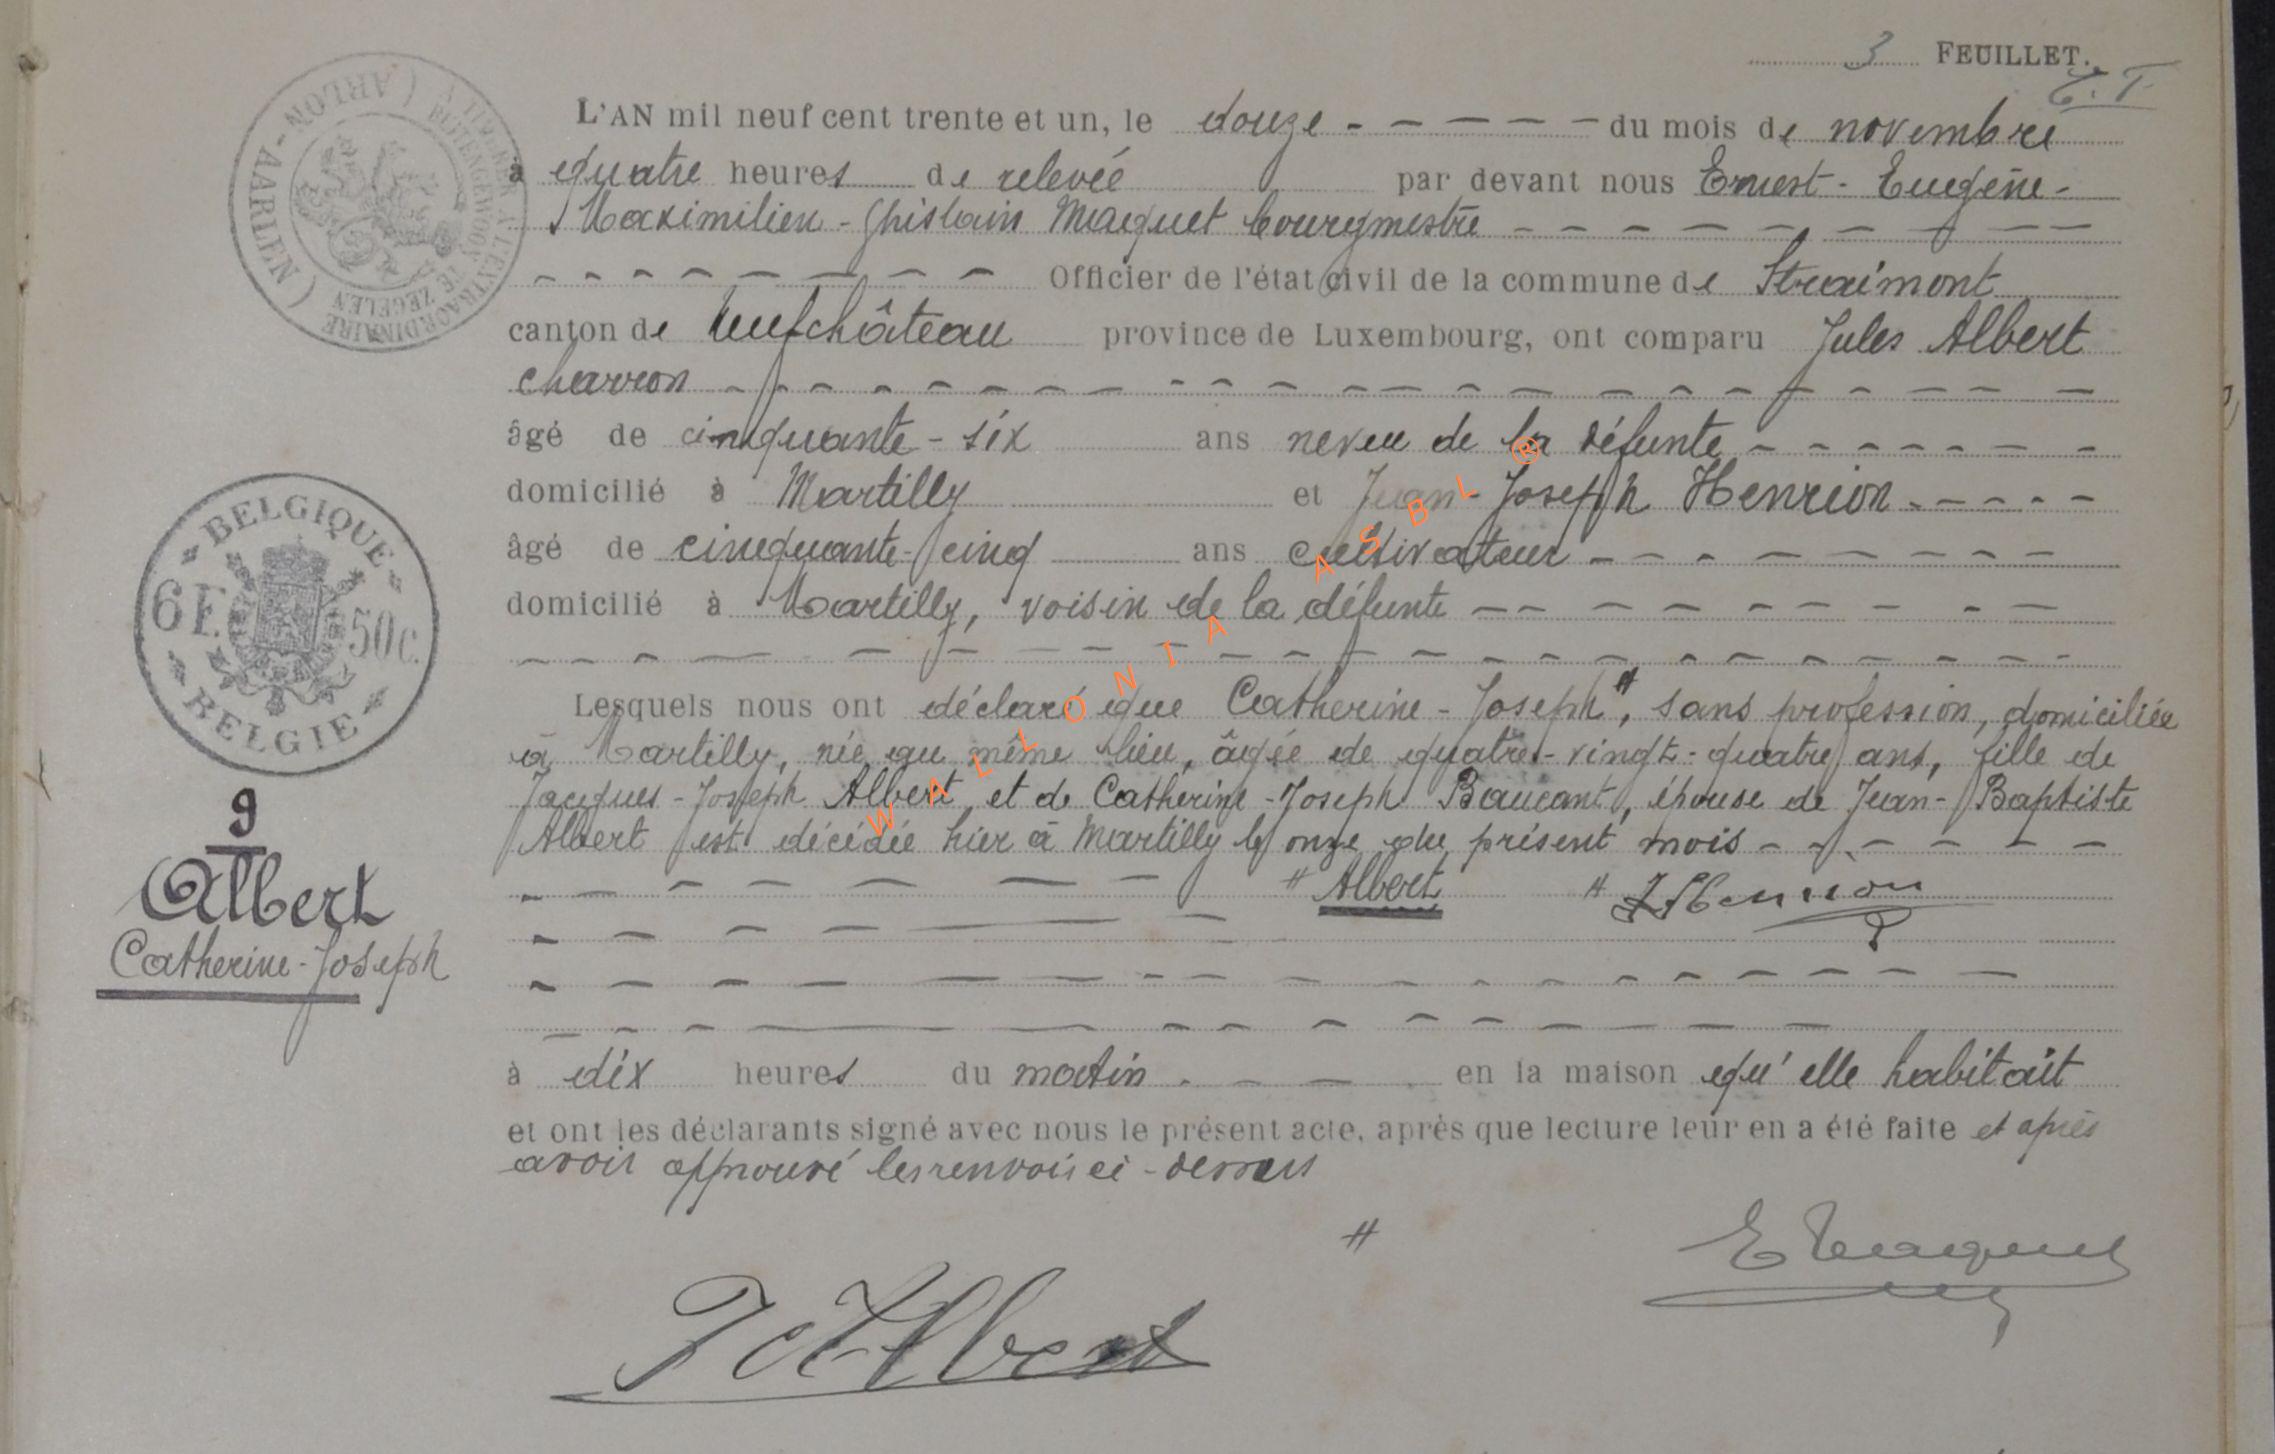 3 FEUILLET.
E. T.
ARLON - AARLEN ( A TIMBRER A L'EXTRAORDINAIRE
BUITENGEWOON TE ZEGELEN
L'AN mil neuf cent trente et un, le douze - - - - - du mois de novembre
à quatre heures de relevée par devant nous Ernest - Eugène -
Maximilien - Ghislain Maquet bourgmestre - - - - - - - - - -
- - - - - - - - - Officier de l'état civil de la commune de Straimont
canton de Neufchâteau province de Luxembourg, ont comparu Jules Albert
charron - - - - - - - - - - - - - - - - - - - - - - -
âgé de cinquante - six ans neveu de la défunte - - - - - - -
domicilié à Martilly et Jean - Joseph Henrion - - - - -
âgé de cinquante - cinq ans cultivateur - - - - - - - - -
domicilié à Martilly, voisin de la défunte - - - - - - - - -
BELGIQUE
6 F. 50 c.
BELGIE
Lesquels nous ont déclaré que Catherine - Joseph #, sans profession, domiciliée
à Martilly, née au même lieu, âgée de quatre - vingt - quatre ans, fille de
Jacques - Joseph Albert et de Catherine - Joseph Baucant, épouse de Jean - Baptiste
Albert est décédée hier à Martilly le onze du présent mois - - - - - - -
# Albert # J Henrion
9
Albert
Catherine - Joseph
à dix heures du matin - - - en la maison qu'elle habitait
et ont les déclarants signé avec nous le présent acte, après que lecture leur en a été faite et après
avoir approuvé les renvois ci - dessus
#
E Maquet
J Albert
WALLONIA ASBL ®